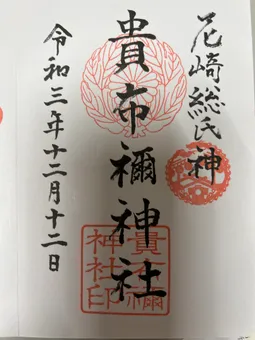 尼崎総氏神
貴布禰神社
貴布禰神社印
令和三年十二月十二日